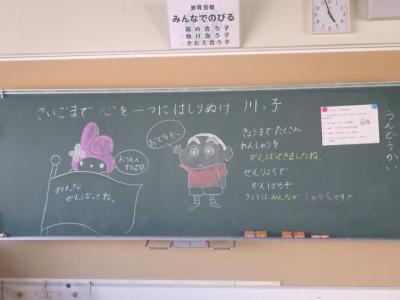 教育目標
みんなでのびる
○認め合う子
○助け合う子
○きたえ合う子
さいごまで 心を一つに はしりぬけ 川っ子
うんどうかい
おうえんするよ
みんな
がんばってね。
きょうまで たくさん
れんしゅうを
がんばってきましたね。
ぜんりょくで
がんばるぞ
きょうは みんなが しゅやくです!!